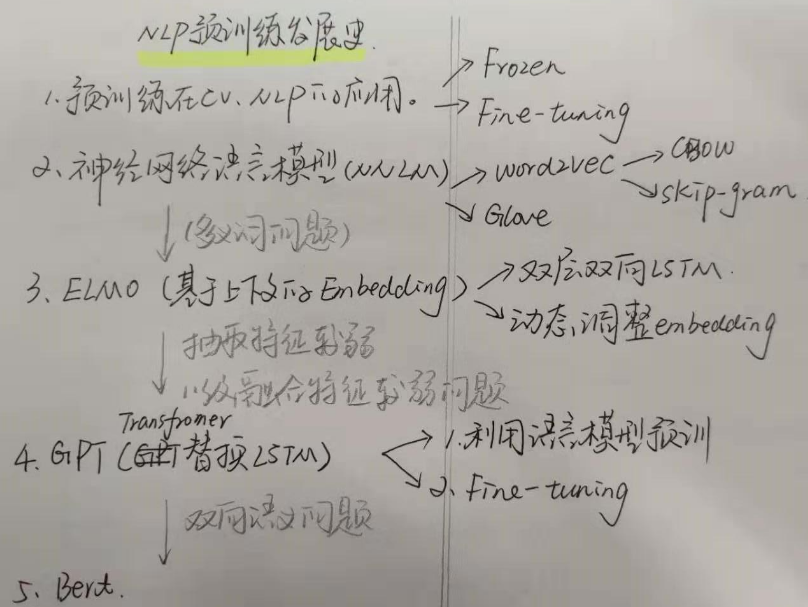 NLP预训练发展史.
1、预训练在CV、NLP的应用。 → Frozen
→ Fine-tuning
2、神经网络语言模型(NNLM) → word2vec → CBOW
→ skip-gram
→ Glove
↓ (多义词问题)
3、ELMO (基于上下文的Embedding) → 双层双向LSTM.
→ 动态调整embedding
↓ 抽取特征较弱
以及融合特征较弱问题
Transfromer
4、GPT (替换LSTM) → 1.利用语言模型预训
→ 2、Fine-tuning
↓ 双向语义问题
5、Bert.